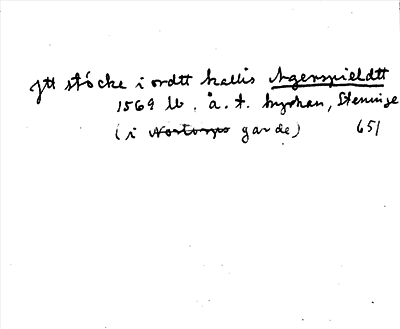 Jtt stöcke i ordtt kallis Agerspieldtt
1569 lb. å. t. hyrkan, Steninge
(i Nortorps garde) 651